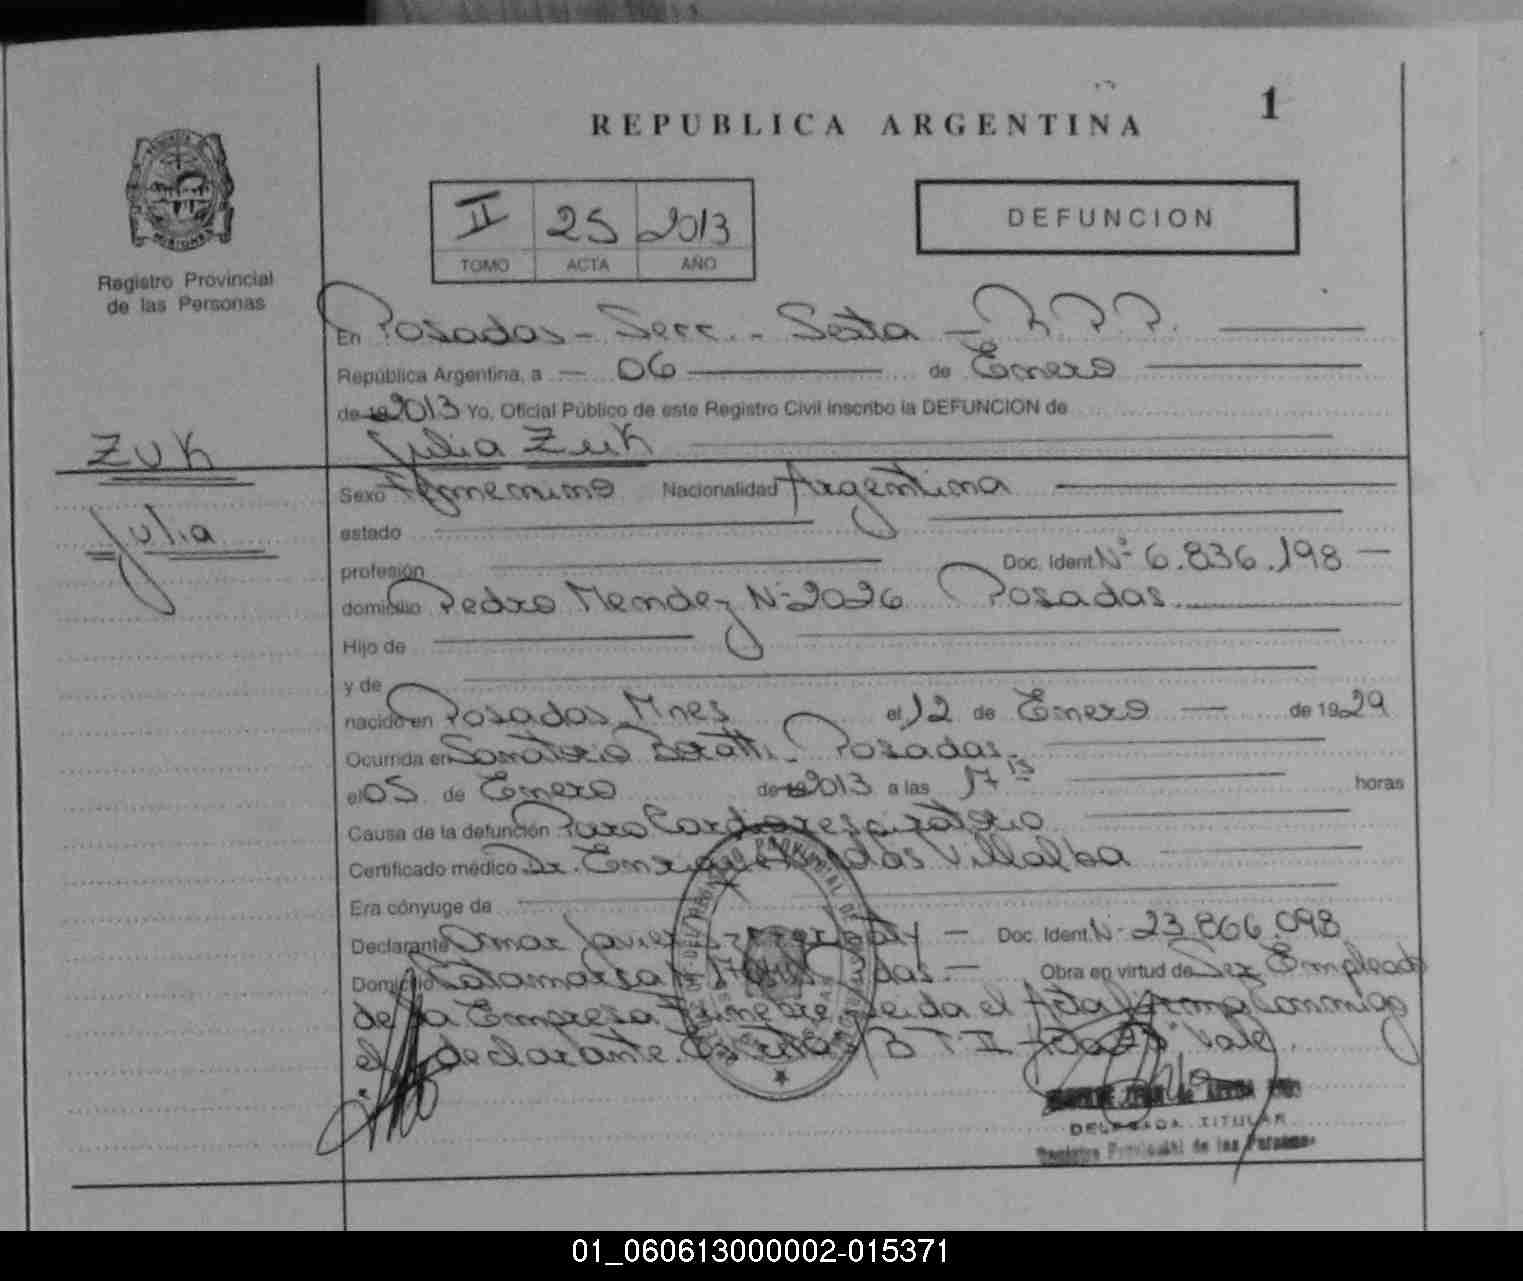 1
REPUBLICA ARGENTINA
MISIONES
Registro Provincial
de las Personas
II 25 2013
TOMO ACTA AÑO
DEFUNCION
En Posadas - Secc. - Sexta - R.P.P.
República Argentina, a 06 de Enero
de 19 2013 Yo, Oficial Público de este Registro Civil inscribo la DEFUNCION de
ZUK
Julia Zuk
Julia
Sexo Femenino Nacionalidad Argentina
estado
profesión Doc. Ident. Nº 6.836.198 -
domicilio Pedro Mendez Nº 2026 Posadas
Hijo de
y de
nacido en Posadas Mnes el 12 de Enero de 1929
Ocurrida en Sanatorio Boratti - Posadas
el 05 de Enero de 19 2013 a las 17 15 horas
Causa de la defunción Paro Cardiorespiratorio
Certificado médico Dr. Enrique Villalba
Era cónyuge de
Declarante Omar Javier - Doc. Ident. Nº 23.866.098
Domicilio Catamarca - Obra en virtud de Ser Empleado
de la Empresa Fúnebre Leida el Acta firma Conmigo
el declarante. T II Vale.
DELEGADA TITULAR
Registro Provincial de las Personas
01_060613000002-015371